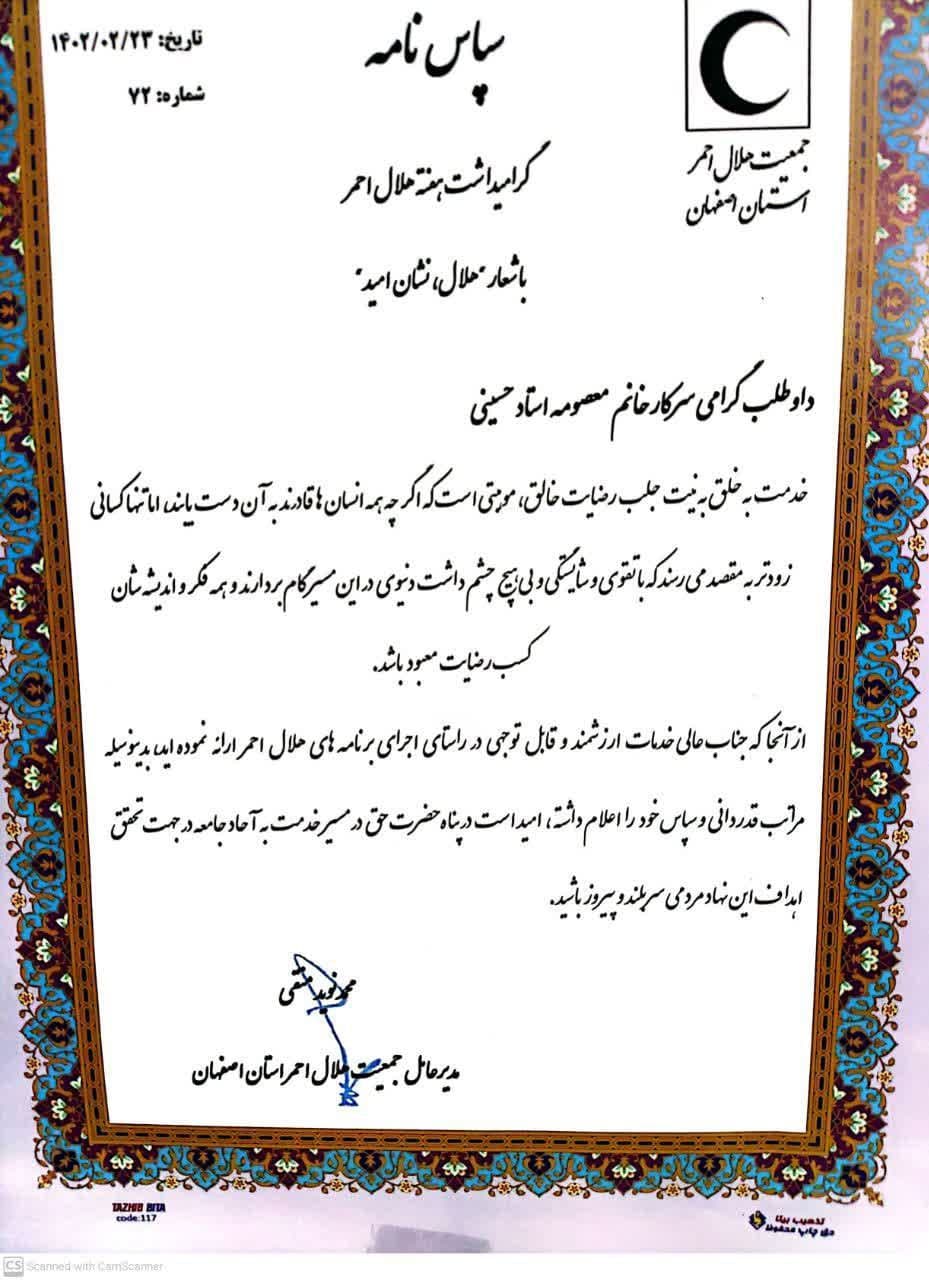 سپاس نامه
تاریخ: ۱۴۰۲/۰۲/۲۳
شماره: ۷۲
جمعیت هلال احمر
استان اصفهان
گرامیداشت هفته هلال احمر
با شعار "هلال، نشان امید"
داوطلب گرامی سرکار خانم معصومه استاد حسینی
خدمت به خلق به نیت جلب رضایت خالق، موهبتی است که اگر چه همه انسان ها قادرند به آن دست یابند، اما تنها کسانی
زودتر به مقصد می رسند که با تقوی و شایستگی و بی هیچ چشم داشت دنیوی در این مسیر گام بردارند و همه فکر و اندیشه شان
کسب رضایت معبود باشد.
از آنجا که جناب عالی خدمات ارزشمند و قابل توجهی در راستای اجرای برنامه های هلال احمر ارائه نموده اید، بدینوسیله
مراتب قدردانی و سپاس خود را اعلام داشته، امید است در پناه حضرت حق در مسیر خدمت به آحاد جامعه در جهت تحقق
اهداف این نهاد مردمی سربلند و پیروز باشید.
محمد نوید متقی
مدیرعامل جمعیت هلال احمر استان اصفهان
TAZHIB BITA
code:117
تذهیب بیتا
حق چاپ محفوظ
CS Scanned with CamScanner